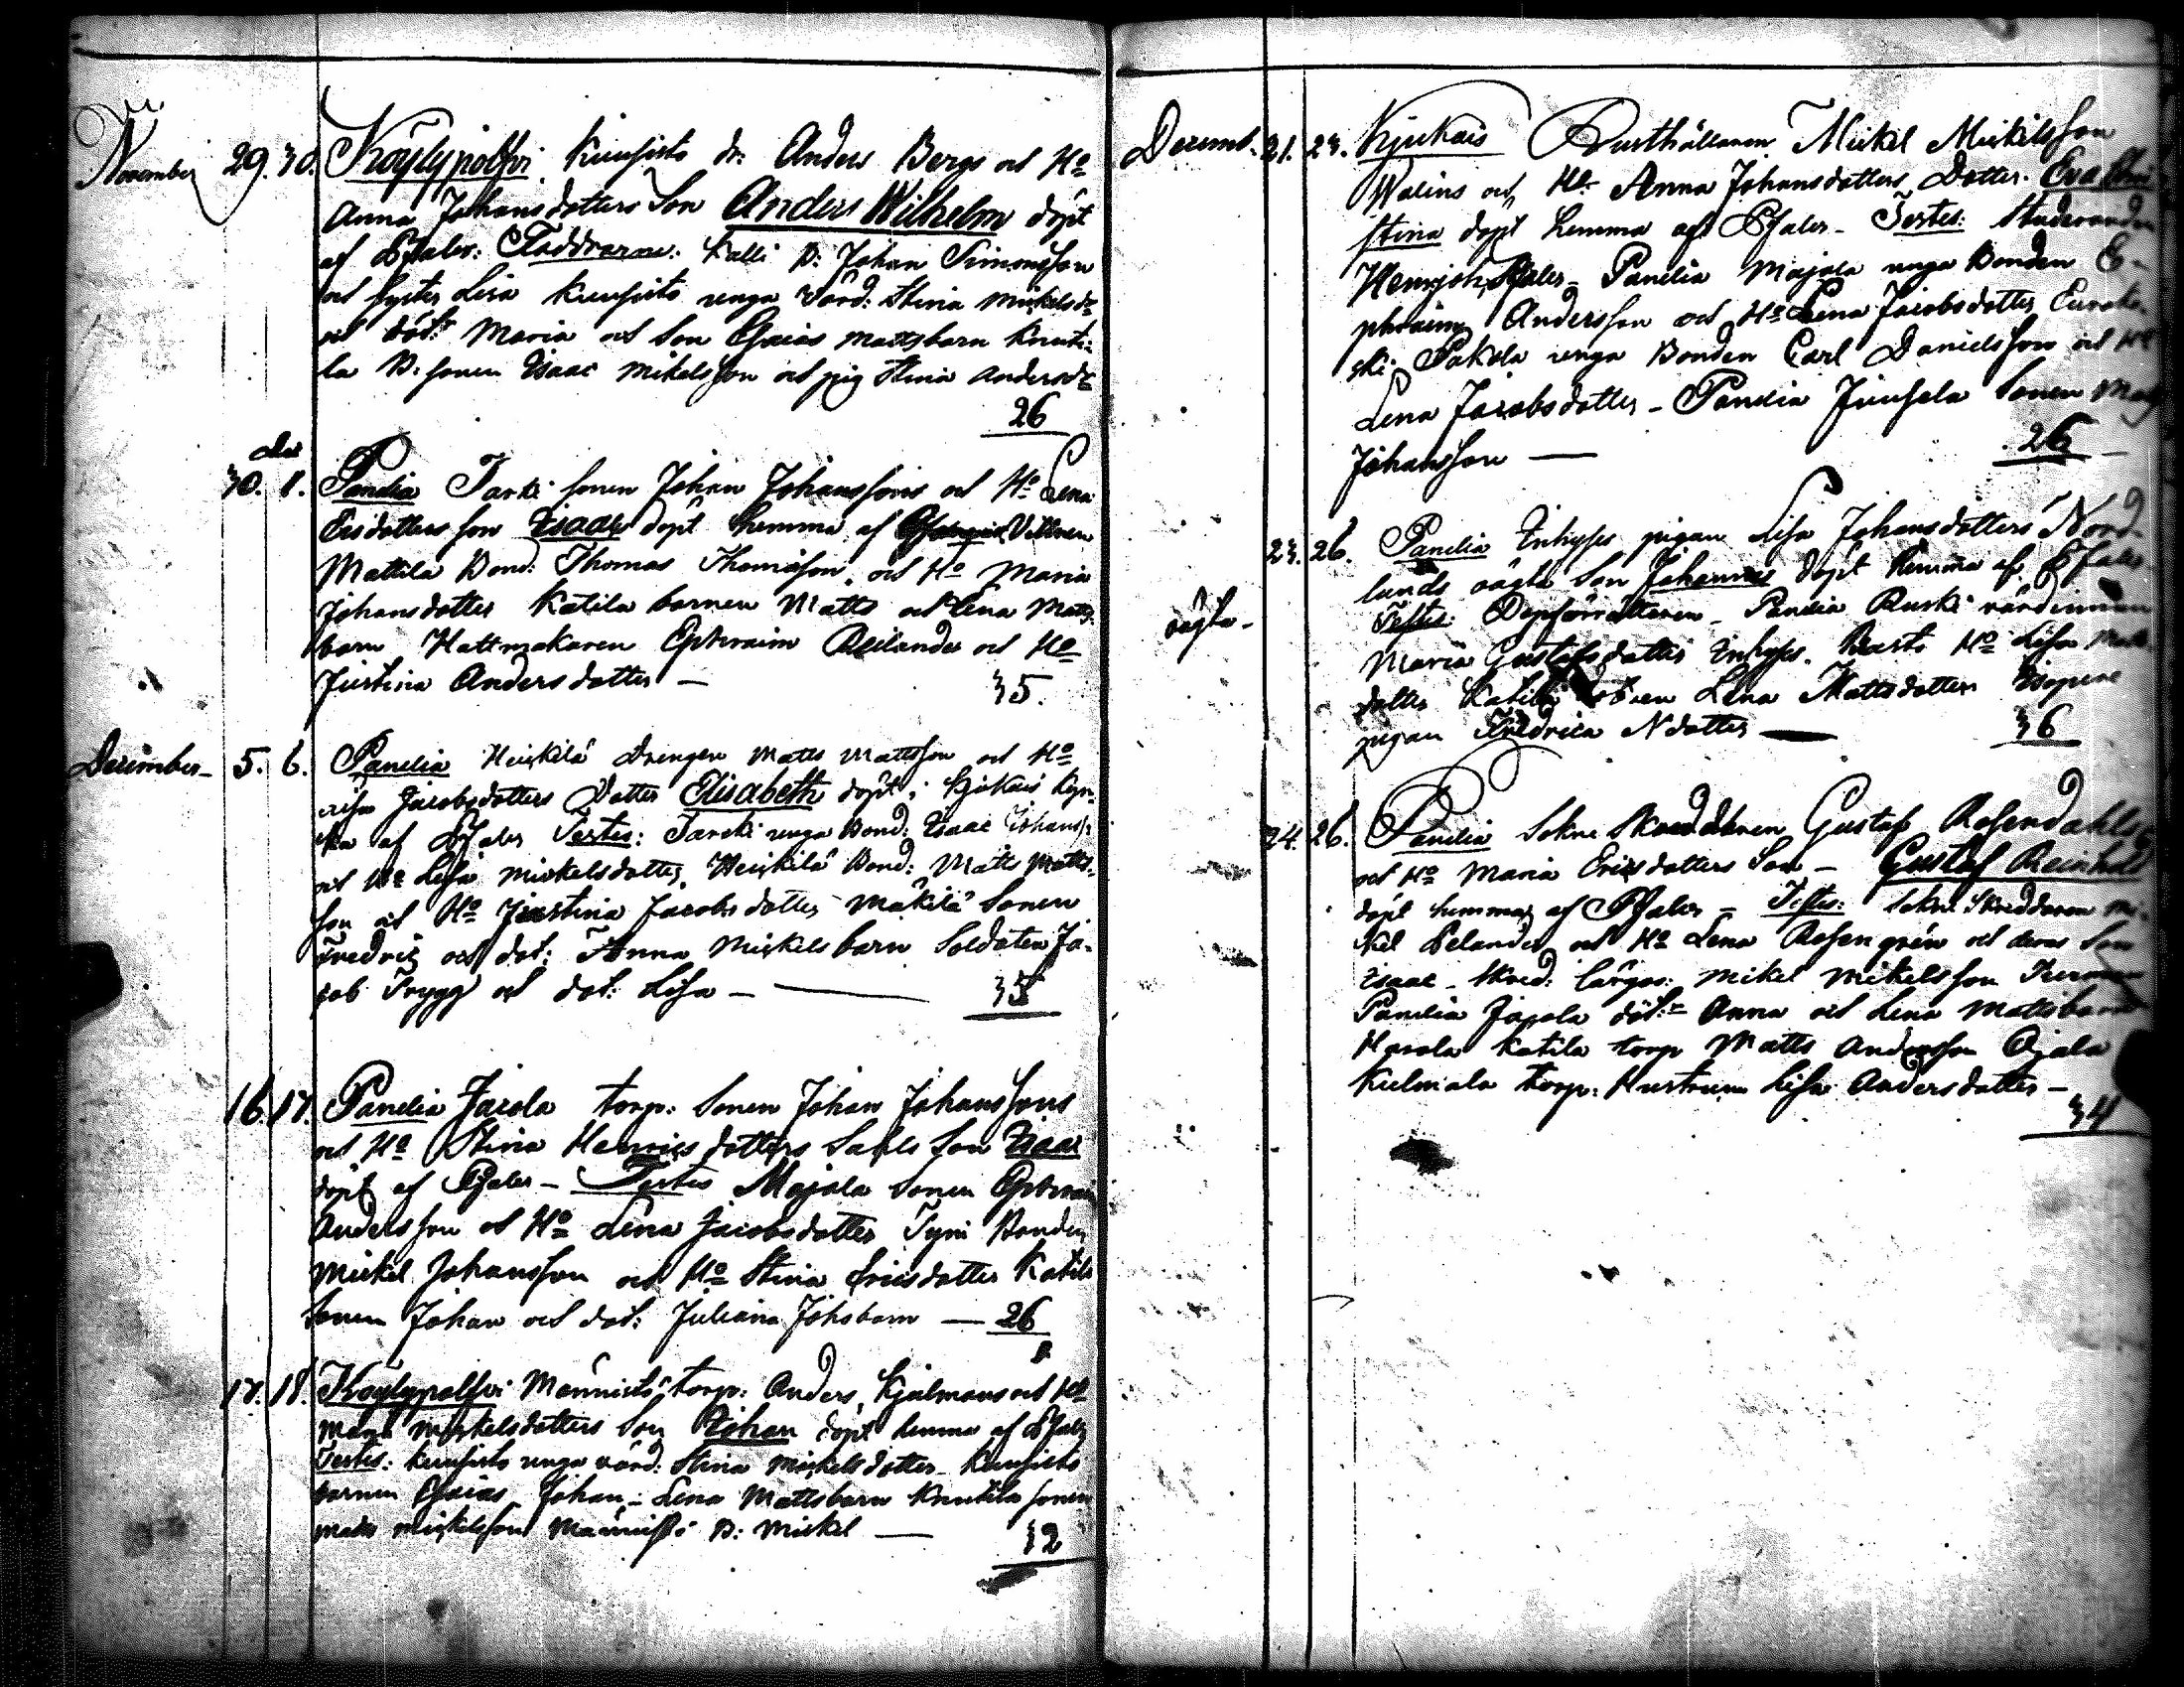 November 29. 30. Köylypolfvi Kuusisto dr: Anders Bergs och Ho
Anna Johansdotters Son Anders Wilhelm döpt
af Pfaler: Faddrarne: Kalli D: Johan Simonsson
och Syster Lisa Kuusisto unga värd: Stina Mickelsdr
och dotr Maria och Son Esaias Mattsbarn Knuti-
la D. sonen Isaac Mikelsson och pig Stina Andersdr
26
Dec
30. 1. Panelia Tarki sonen Johan Johanssons och Ho Lena
Ersdotters son Isaac döpt hemma af Villnen
Mattila Bond: Thomas Thomasson, och Ho Maria
Johansdotter Katila barnen Matts och Lena Matts
barn Hattmakaren Ephraim Reilander och Ho
Justina Andersdotter —
35.
December — 5. 6. Panelia Heikkilä Drengen Matts Mattsson och Ho
Lisa Jacobsdotters Dotter Elisabeth döpt i Kjukais Kyr-
ka af Pfaler Testes: Tarcki unga Bond: Isaac Johanss:
och Ho Lisa Mickelsdotter, Heikkilä Bond: Matts Matts-
son och Ho Justina Jacobsdotter Mäkilä Sonen
Fredric och dot: Anna Mickelsbarn Soldaten Ja-
cob Trygg och dot: Lisa —
35
16. 17. Panelia Jacola torp: Sonen Johan Johanssons
och Ho Stina Henricsdotters Sahls Son Isaac
döpt af Pfaler — Testes Majala Sonen Ephraim
Andersson och Ho Lena Jacobsdotter Tyni Bonden
Mickel Johansson och Ho Stina Ericsdotter Katila
Sonen Johan och dot: Juliana Johsbarn — 26
17. 18. Köylypolfvi Männistö torp: Anders Hjalmans och Ho
Maria Mickelsdotters Son Johan döpt hemma af Pfaler
Testes: Kuusisto unga värd: Stina Mickelsdotter — Kuusisto
barnen Esaias Johan — Lena Mattsbarn Knutila sonen
Matts Mickelsson Männistö D: Mickel —
32
Decemb. 21. 23. Kjukais Rusthållaren Mickel Mickelsson
Walins och Ho Anna Johansdotters Dotter Eva Chri
stina döpt hemma af Pfaler — Testes: Studeranden
Henr Joh Pfaler — Panelia Majala unga Bonden E-
phraim Andersson och Ho Lena Jacobsdotter Eurakos-
ki: Pakola unga Bonden Carl Danielsson och Ho
Lena Jacobsdotter — Panelia Juusela Sonen Matts
Johansson —
26
23. 26. Panelia Inhyses pigan Lisa Johansdotters Nord-
lunds oägta Son Johannes döpt hemma af Pfaler
oägta —
Testes: Dopförrättaren — Panelia Ruski värdinnan
Maria Gustafsdotter Inhyses. Ho Lisa Matts
dotter Katila Lena Mattsdotter
pigan Fredrica N dotter —
36
24. 26. Panelia Sokne Skreddaren Gustaf Rosendahls
och Ho Maria Ericsdotters Son — Gustaf Reinhold
döpt hemma af Pfaler — Testes: Sokne Skreddaren Mi-
kel Pelander och Ho Lena Rosengrén och deras Son
Isaac — Skred: lärgos: Mikel Mickelsson
Panelia Jacola döt: Anna och Lena Mattsbarn
Harola Katila torp Matts Andersson Ojala
Kulmala Torp: Hustrun Lisa Andersdotter —
34